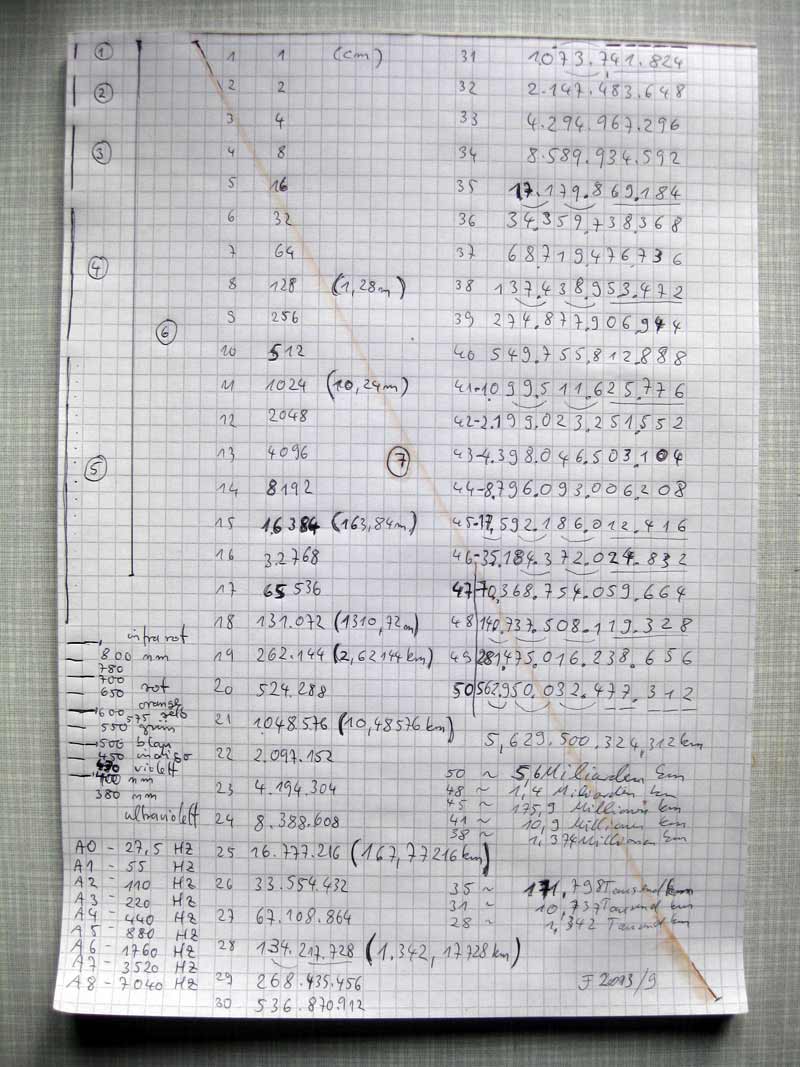 ①
②
③
④
⑤
⑥
⑦
1 1 (cm)
2 2
3 4
4 8
5 16
6 32
7 64
8 128 (1,28m)
9 256
10 512
11 1024 (10,24m)
12 2048
13 4096
14 8192
15 16384 (163,84m)
16 3.2768
17 65536
18 131.072 (1310,72m)
19 262.144 (2,62144km)
20 524.288
21 1048.576 (10,48576km)
22 2.097.152
23 4.194.304
24 8.388.608
25 16.777.216 (167,77216km)
26 33.554.432
27 67.108.864
28 134.217.728 (1.342,17728km)
29 268.435.456
30 536.870.912
31 1073.741.824
32 2.147.483.648
33 4.294.967.296
34 8.589.934.592
35 17.179.869.184
36 34.359.738.368
37 68719476736
38 137.438.953.472
39 274.877.906.944
40 549.755.812.888
41-1099.511.625.776
42-2.199.023.251.552
43-4.398.046.503.104
44-8.796.093.006.208
45-17.592.186.012.416
46-35.184.372.024.832
47 70.368.754.059.664
48 140.737.508.119.328
49 281.475.016.238.656
50 562.950.032.477.312
5,629.500.324,312km
50 ~ 5,6 Miliarden km
48 ~ 1,4 Miliarden km
45 ~ 175,9 Millionen km
41 ~ 10,9 Millionen km
38 ~ 1,374 Millionen km
35 ~ 171,798 Tausend km
31 ~ 10,737 Tausend km
28 ~ 1,342 Tausend km
infrarot
800 nm
780
700
650 rot
orange
600
575 gelb
550 grün
500 blau
450 indigo
430 violett
400 nm
380 nm
ultraviolett
A0 - 27,5 HZ
A1 - 55 HZ
A2 - 110 HZ
A3 - 220 HZ
A4 - 440 HZ
A5 - 880 HZ
A6 - 1760 HZ
A7 - 3520 HZ
A8 - 7040 HZ
F 2013/9